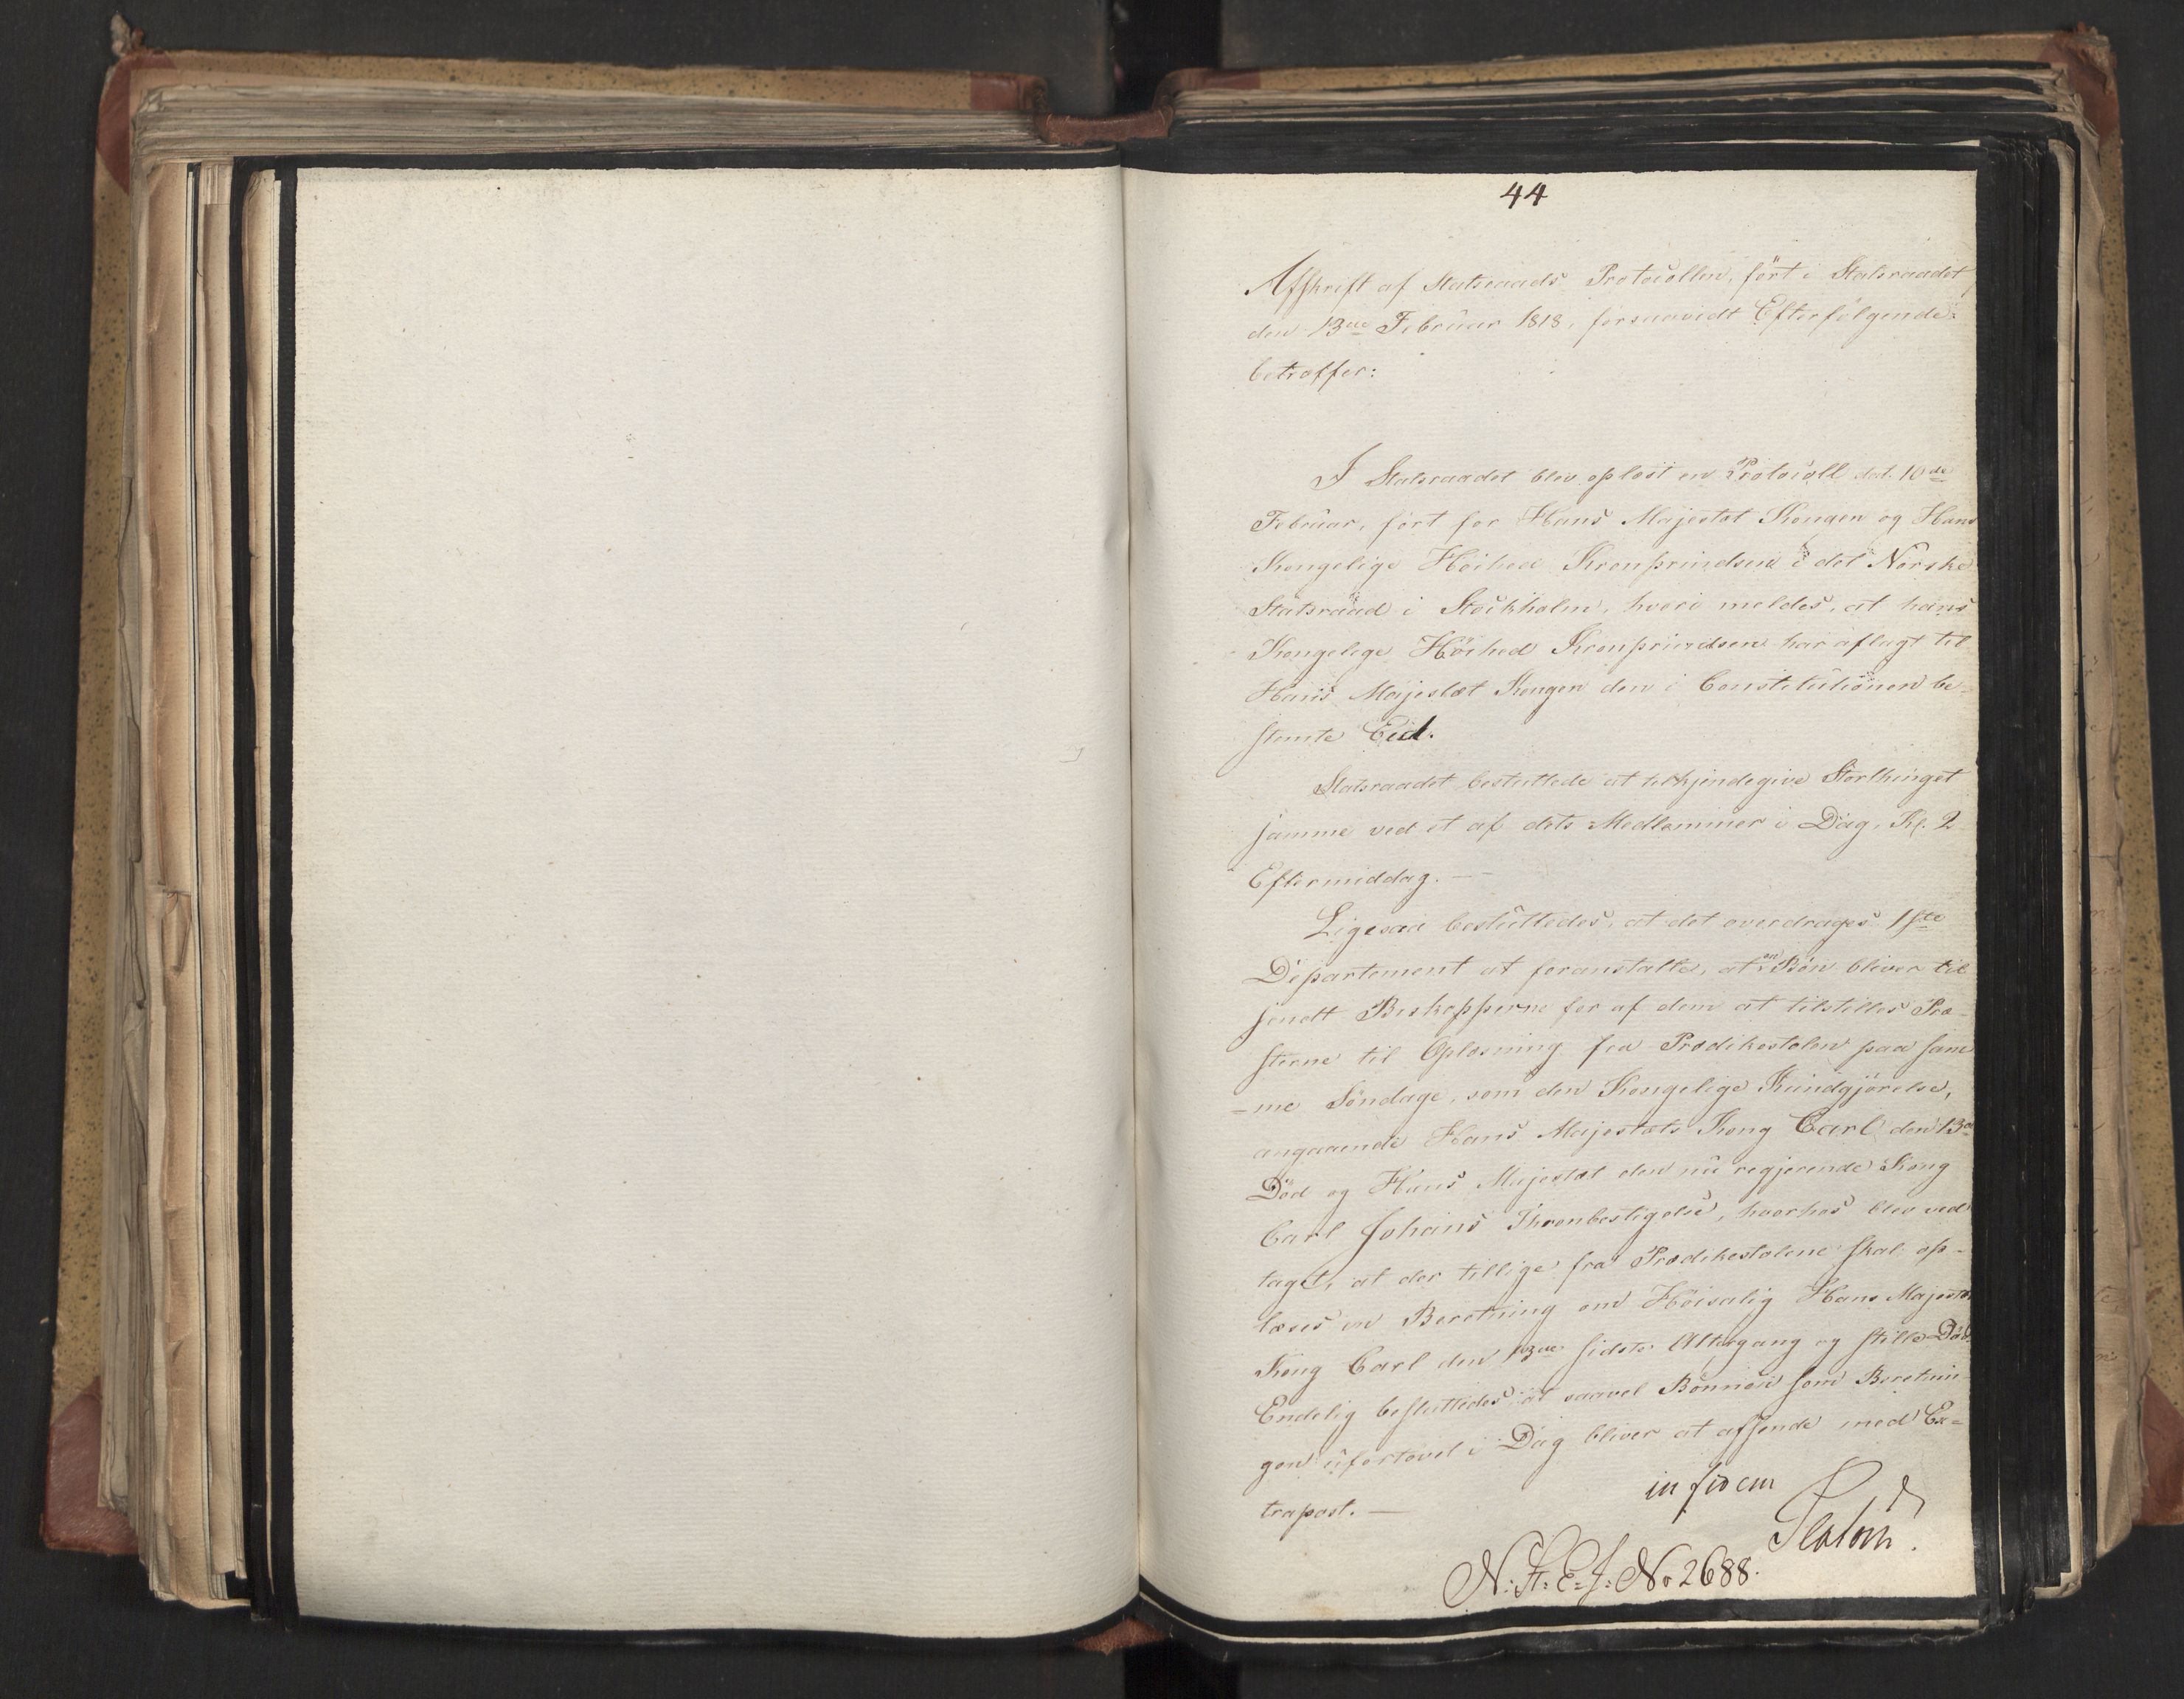 44
Afskrift af Statsraads Protocollen, fört i Statsraadet
den 13de Februar 1818, forsaavidt Efterfölgende
betræffer:
I Statsraadet blev oplæst en Protocoll dat. 10de
Februar, fört for Hans Majestæt Kongen og Hans
Kongelige Höihed Kronprindsen i det Norske
Statsraad i Stockholm, hvori meldes, at hans
Kongelige Höihed Kronprindsen har aflagt til
Hans Majestæt Kongen den i Constitutionen be-
stemte Eed.
Statsraadet besluttede at tilkjendegive Storthinget
samme ved et af dets Medlemmer i Dag, Kl. 2
Eftermiddag. —
Ligesaa besluttedes, at det overdrages 1ste
Departement at foranstalte, at en Bön bliver til-
sendt Biskopperne for af dem at tilstilles Præ-
sterne til Oplæsning fra Prædikestolen paa sam-
-me Söndage, som den Kongelige Kundgjörelse,
angaaende Hans Majestæts Kong Carl den 13des
Död og Hans Majestæt den nu regjerende Kong
Carl Johans Thronbestigelse, hvorhos blev ved-
taget, at der tillige fra Prædikestolene skal op-
læses en Beretning om Höisalig Hans Majestæt
Kong Carl den 13des sidste Altergang og stille Död.
Endelig besluttedes at saavel Bönnen som Beretnin-
gen ufortövet i Dag bliver at afsende med Ex-
trapost. —
in fidem
Platou.
N: St: E: J: No 2688.